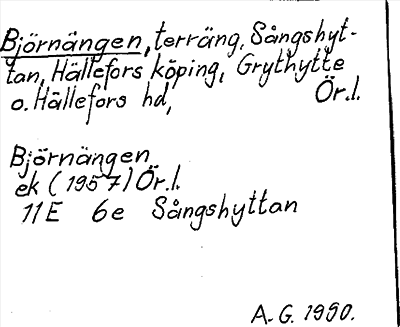 Björnängen, terräng, Sångshyt-
tan, Hällefors köping, Grythytte
o. Hällefors hd, Ör.l.
Björnängen
ek (1957) Ör.l.
11E 6e Sångshyttan
A-G. 1990.